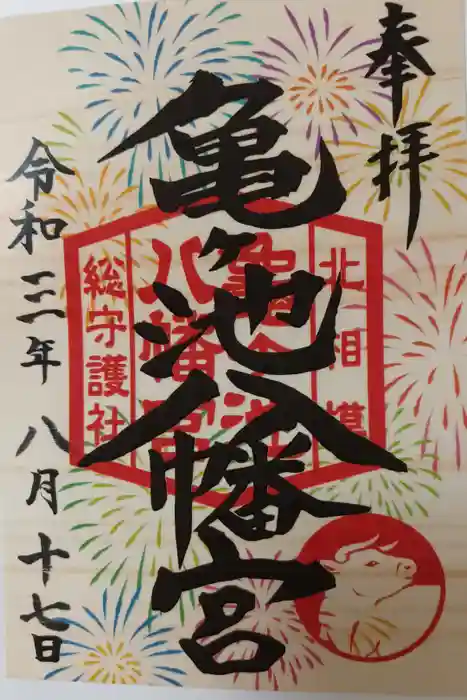 奉拝
亀ヶ池八幡宮
北相模
亀ヶ池
八幡宮
総守護社
令和三年八月十七日